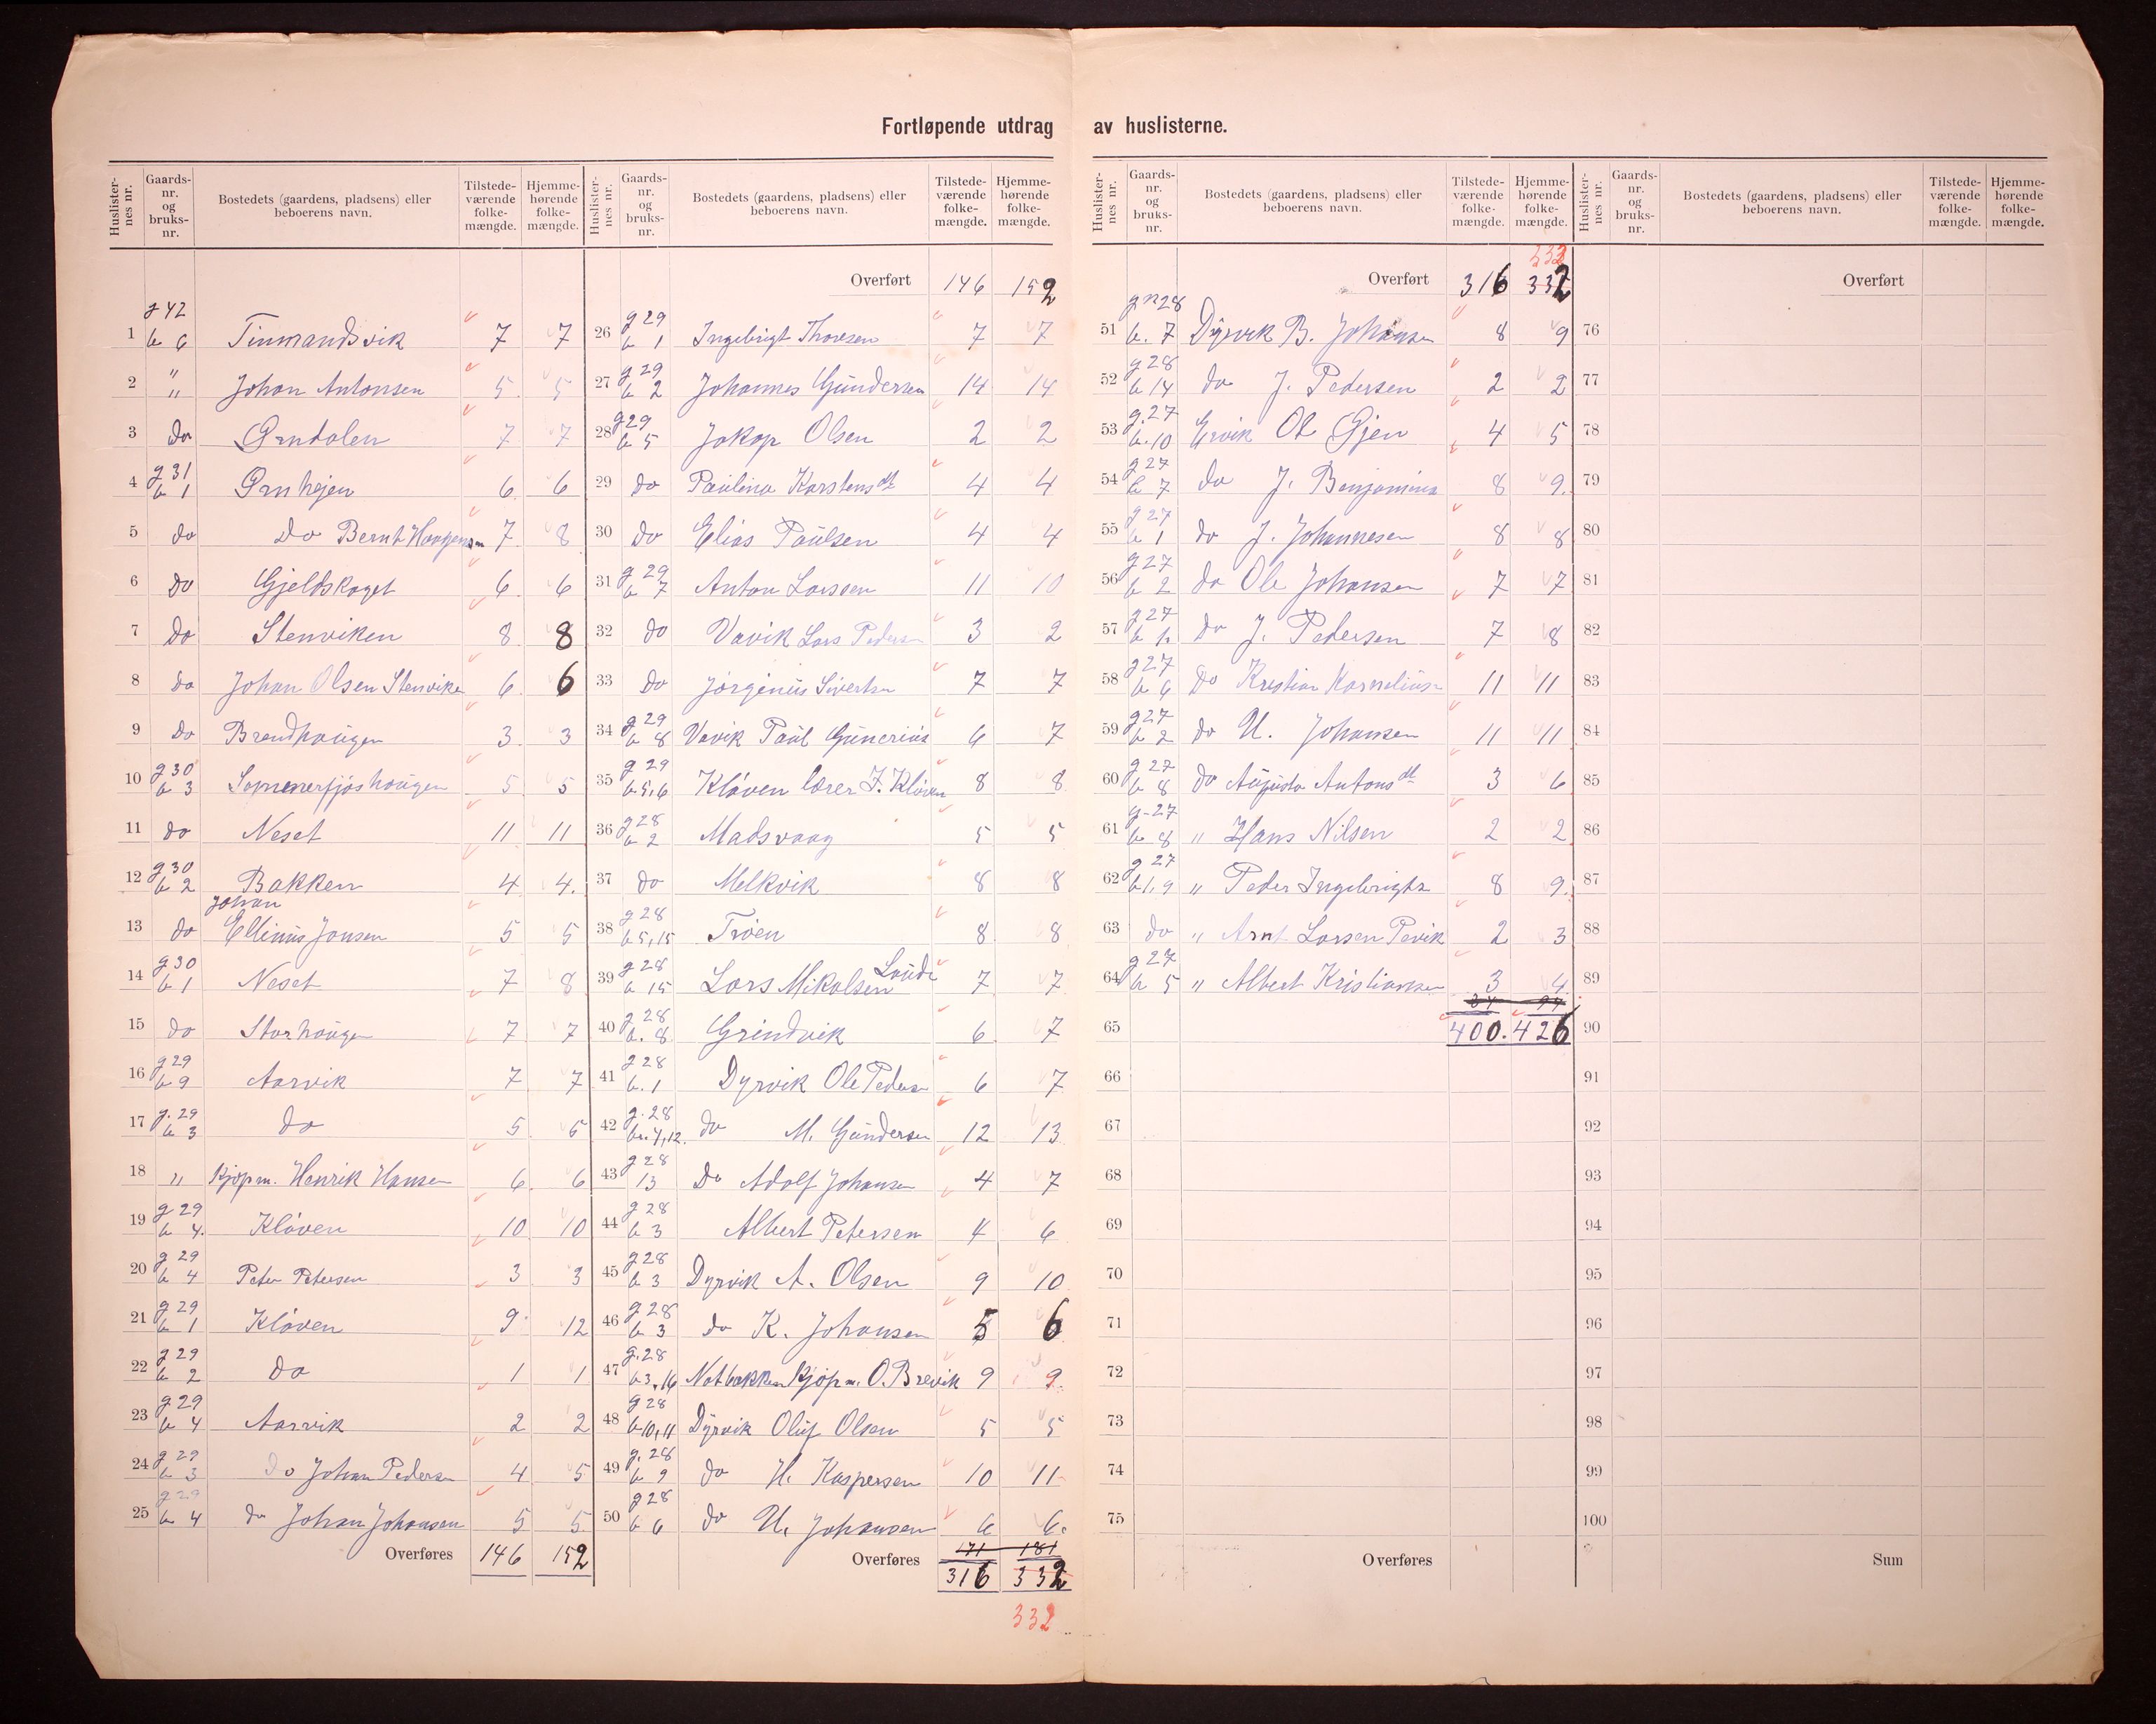 Fortløpende utdrag av huslisterne.
Huslisternes nr. | Gaards-nr. og bruks-nr. | Bostedets (gaardens, pladsens) eller beboerens navn. | Tilstedeværende folkemængde. | Hjemmehørende folkemængde.
1 | g 42 b 6 | Tinmandsvik | 7 | 7
2 | " " | Johan Antonsen | 5 | 5
3 | do | Ørndalen | 7 | 7
4 | g 31 b 1 | Ørnhejen | 6 | 6
5 | do | Do Bernt Haagensen | 7 | 8
6 | do | Gjeldskaget | 6 | 6
7 | do | Stenviken | 8 | 8
8 | do | Johan Olsen Stenviken | 6 | 6
9 | do | Brandhaugen | 3 | 3
10 | g 30 b 3 | Sommerfjøshaugen | 5 | 5
11 | do | Neset | 11 | 11
12 | g 30 b 2 | Bakken | 4 | 4.
13 | do | Johan Ellinus Jonsen | 5 | 5
14 | g 30 b 1 | Neset | 7 | 8
15 | do | Storhaugen | 7 | 7
16 | g 29 b 9 | Aarvik | 7 | 7
17 | g. 29 b 3 | do | 5 | 5
18 | " | Kjøpm. Henrik Hansen | 6 | 6
19 | g 29 b 4. | Kløven | 10 | 10
20 | g 29 b 4 | Peter Petersen | 3 | 3
21 | g 29 b 1 | Kløven | 9 | 12
22 | g 29 b 2 | do | 1 | 1
23 | g 29 b 4 | Aarvik | 2 | 2
24 | g 29 b 3 | do Johan Pedersen | 4 | 5
25 | g 29 b 4 | do Johan Johansen | 5 | 5
Overføres | 146 | 152
Huslisternes nr. | Gaards-nr. og bruks-nr. | Bostedets (gaardens, pladsens) eller beboerens navn. | Tilstedeværende folkemængde. | Hjemmehørende folkemængde.
Overført | 146 | 152
26 | g 29 b 1 | Ingebrigt Thoresen | 7 | 7
27 | g 29 b 2 | Johannes Gundersen | 14 | 14
28 | g 29 b 5 | Jakop Olsen | 2 | 2
29 | do | Paulina Karstensdt | 4 | 4
30 | do | Elias Paulsen | 4 | 4
31 | g 29 b 7 | Anton Larssen | 11 | 10
32 | do | Vavik Lars Pedersen | 3 | 2
33 | do | Jørginus Sivertsen | 7 | 7
34 | g 29 b 8 | Vavik Paul Gunerius | 6 | 7
35 | g 29 b 5,6 | Kløven lærer J. Kløven | 8 | 8
36 | g 28 b 2 | Madsvaag | 5 | 5
37 | do | Melkvik | 8 | 8
38 | g 28 b 5,15 | Trøen | 8 | 8
39 | g 28 b 15 | Lars Mikalsen | 7 | 7
40 | g 28 b. 8 | Grindvik | 6 | 7
41 | g 28 b. 1 | Dyrvik Ole Pedersen | 6 | 7
42 | g. 28 br. 4,12. | do M. Gundersen | 12 | 13
43 | g 28 13 | Do Adolf Johansen | 4 | 7
44 | g 28 b 3 | Albert Petersen | 4 | 6
45 | g 28 b 3 | Dyrvik A. Olsen | 9 | 10
46 | g 28 b 3 | do K. Johansen | 5 | 6
47 | g. 28 b 3,16 | Notbakken Kjøpm. O. Brevik | 9 | 9.
48 | g 28 b 10,11 | Dyrvik Oluf Olsen | 5 | 5
49 | g. 28 b 9 | do H. Kaspersen | 10 | 11
50 | g 28 b 6 | do U. Johansen | 6 | 6.
171 | 181
Overføres | 316 | 332
332
Huslisternes nr. | Gaards-nr. og bruks-nr. | Bostedets (gaardens, pladsens) eller beboerens navn. | Tilstedeværende folkemængde. | Hjemmehørende folkemængde.
332
Overført | 316 | 332
51 | gn 28 b. 7 | Dyrvik B. Johansen | 8 | 9
52 | g 28 b 14 | do J. Pedersen | 2 | 2
53 | g. 27 b. 10 | Ervik Ol Gjen | 4 | 5
54 | g 27 b 7 | do J. Benjamins | 8 | 9.
55 | g 27 b 1 | do J. Johannesen | 8 | 8
56 | g 27 b 2 | do Ole Johansen | 7 | 7
57 | g 27 | do J. Pedersen | 7 | 8
58 | g 27 b 6 | Do Kristian Kornelius | 11 | 11
59 | g 27 b 2 | do U. Johansen | 11 | 11
60 | g 27 b 8 | do Augusta Antonsdt | 3 | 6
61 | g-27 b 8 | " Hans Nilsen | 2 | 2
62 | g 27 b 1,9 | " Peder Ingebrigts | 8 | 9.
63 | do | " Arnt Larsen | 2 | 3
64 | g 27 b 5 | " Albert Kristiansen | 3 | 4
65 | 400. | 426
66
67
68
69
70
71
72
73
74
75
Overføres
Huslisternes nr. | Gaards-nr. og bruks-nr. | Bostedets (gaardens, pladsens) eller beboerens navn. | Tilstedeværende folkemængde. | Hjemmehørende folkemængde.
Overført
76
77
78
79
80
81
82
83
84
85
86
87
88
89
90
91
92
93
94
95
96
97
98
99
100
Sum